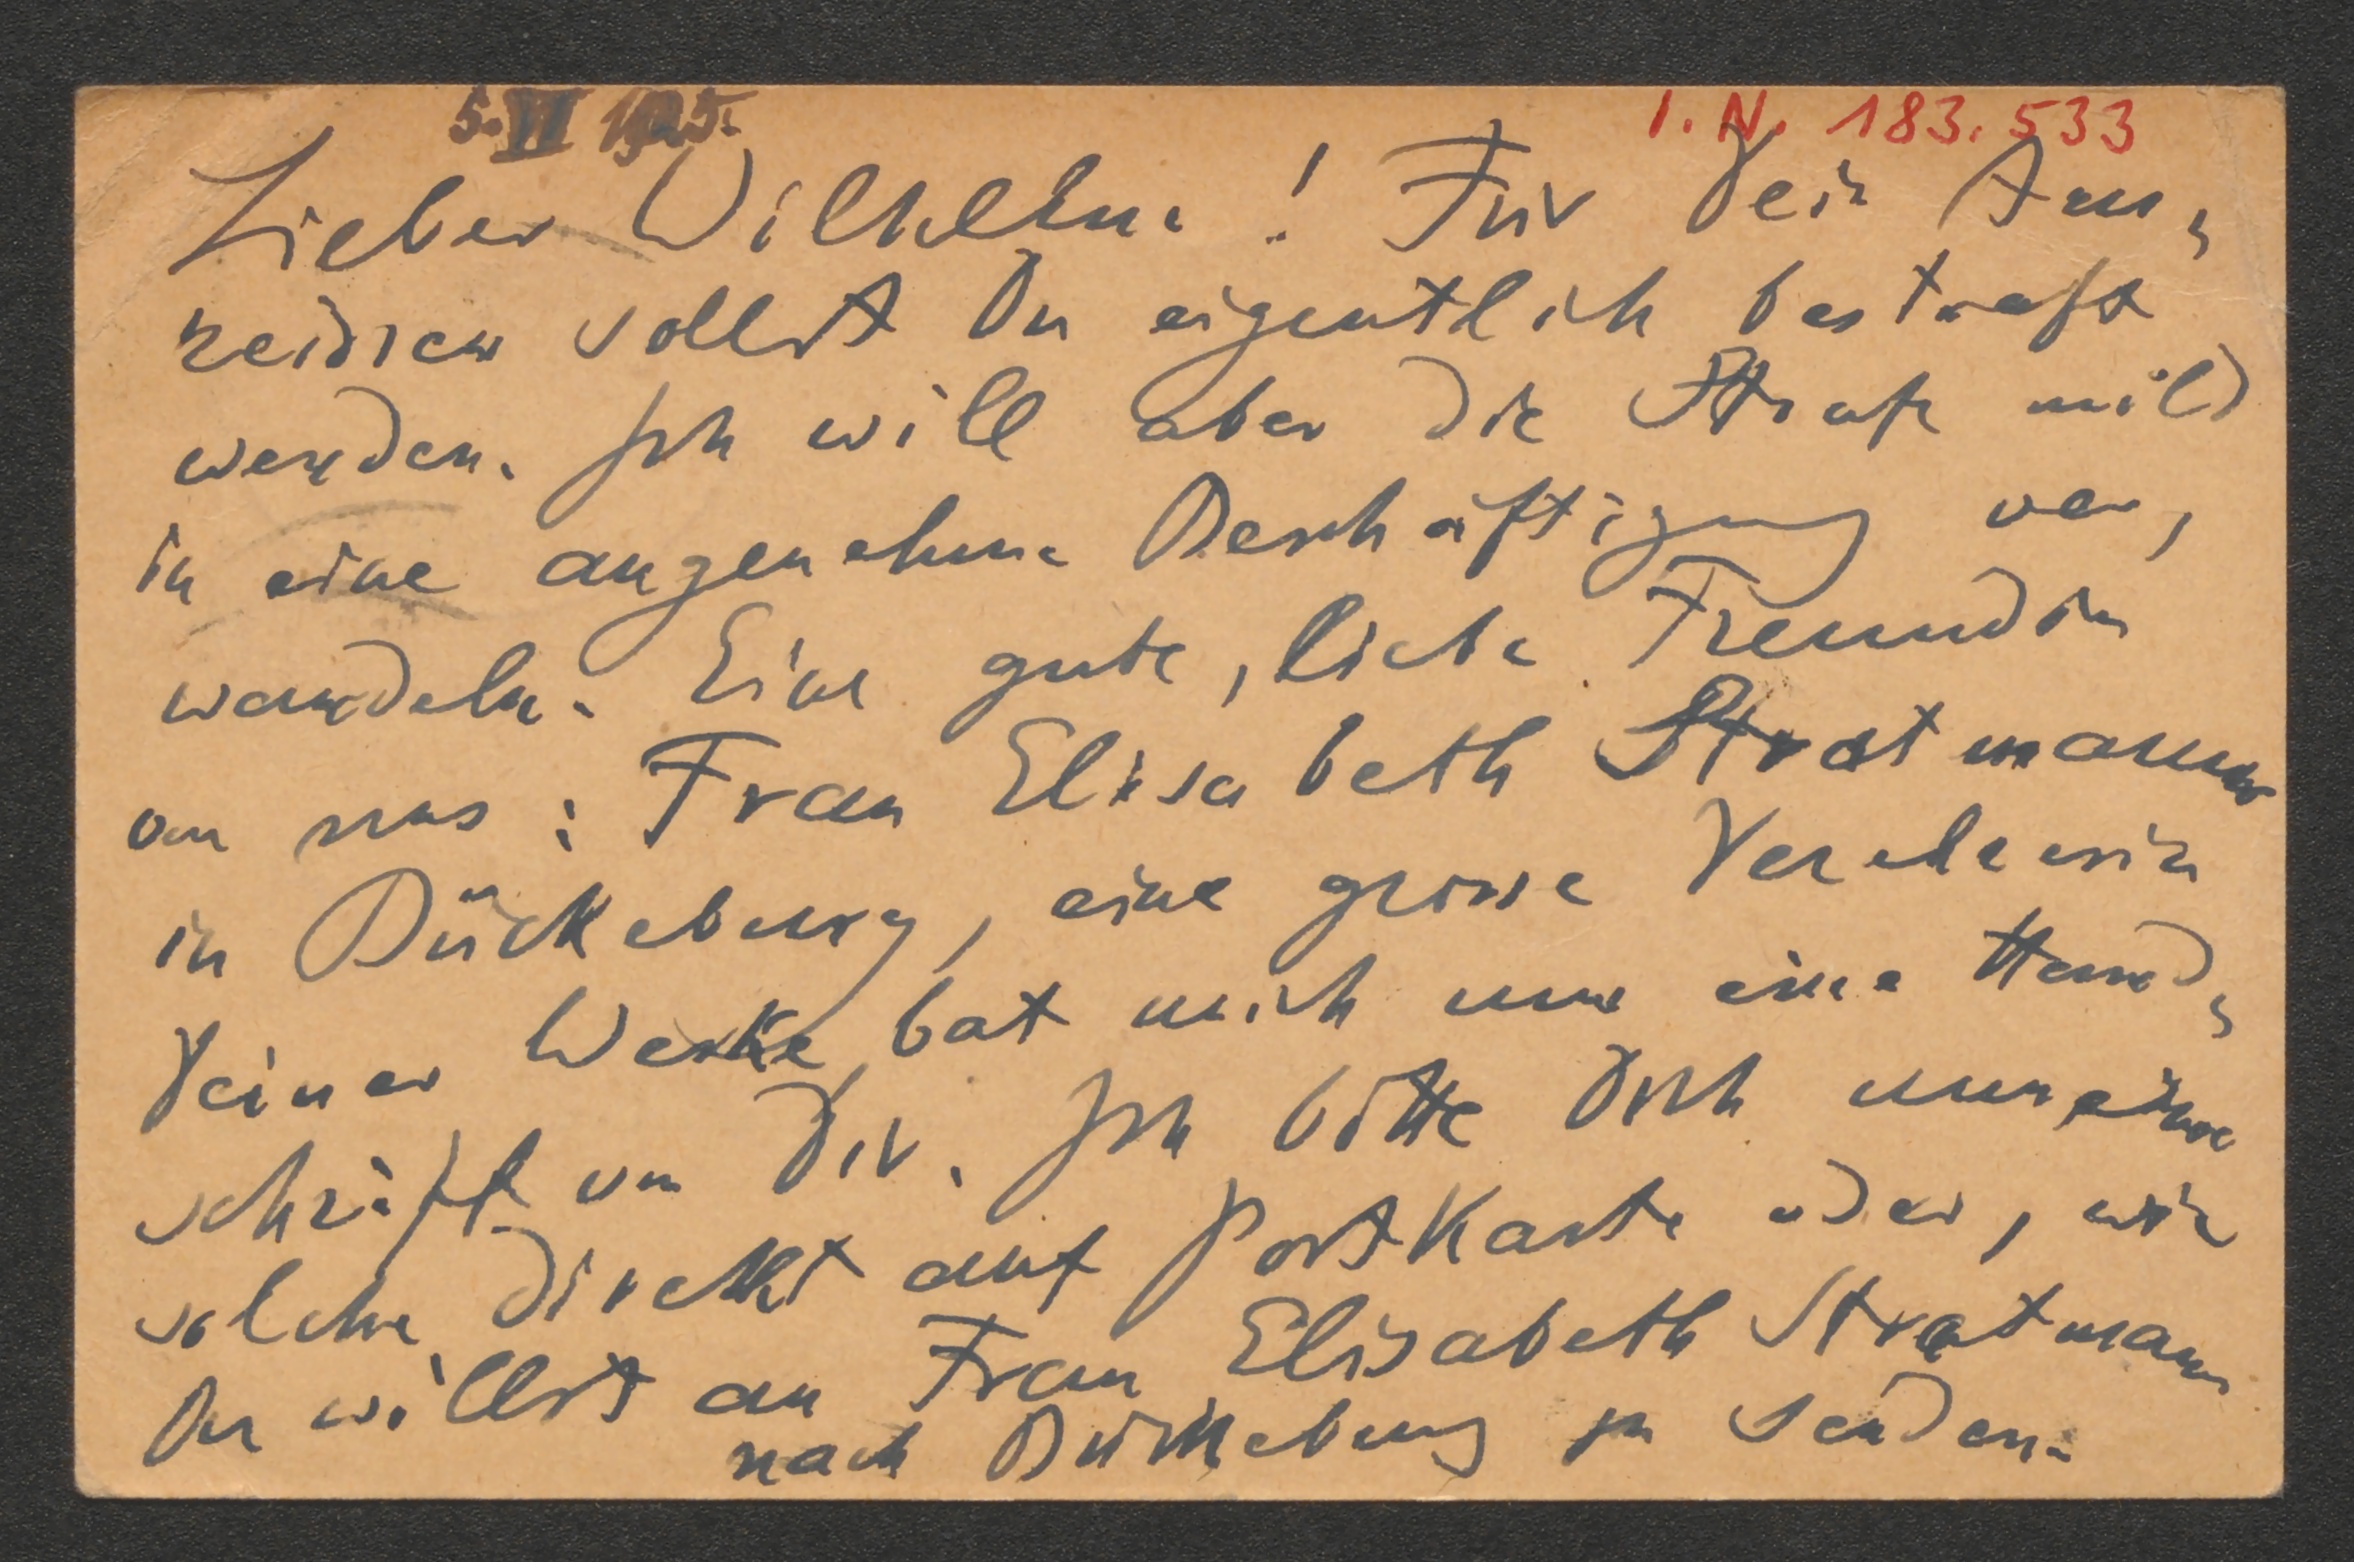 5. VI 1925.
I. N. 183.533
Lieber Wilhelm! Für Dein Aus,
reissen sollst Du eigentlich bestraft
werden. Ich will aber die Strafe mild
in eine angenehme Beschäftigung ver,
wandeln. Eine gute, liebe Freundin
von uns: Frau Elisabeth Stratmann
in Bückeburg, eine grosse Verehrerin
Deiner Werke, bat mich um eine Hand,
schrift von Dir. Ich bitte Dich nun eine
solche direkt auf Postkarte oder, wie
Du willst an Frau Elisabeth Stratmann
nach Bückeburg zu senden.